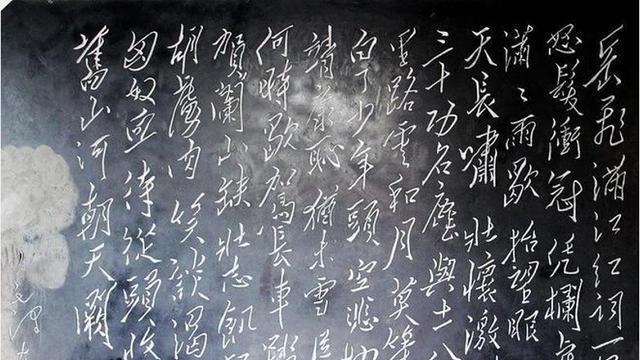 岳飛滿江紅詞一
怒髮衝冠凭欄
瀟々雨歇抬望眼
天長嘯壯懷激
三十功名塵與土八
里路雲和月莫等
白了少年頭空悲切
靖康恥猶未雪臣
何時歇駕長車踏
賀蘭山缺壯志飢
胡虜肉笑談渴
匈奴血待從頭收
舊山河朝天闕